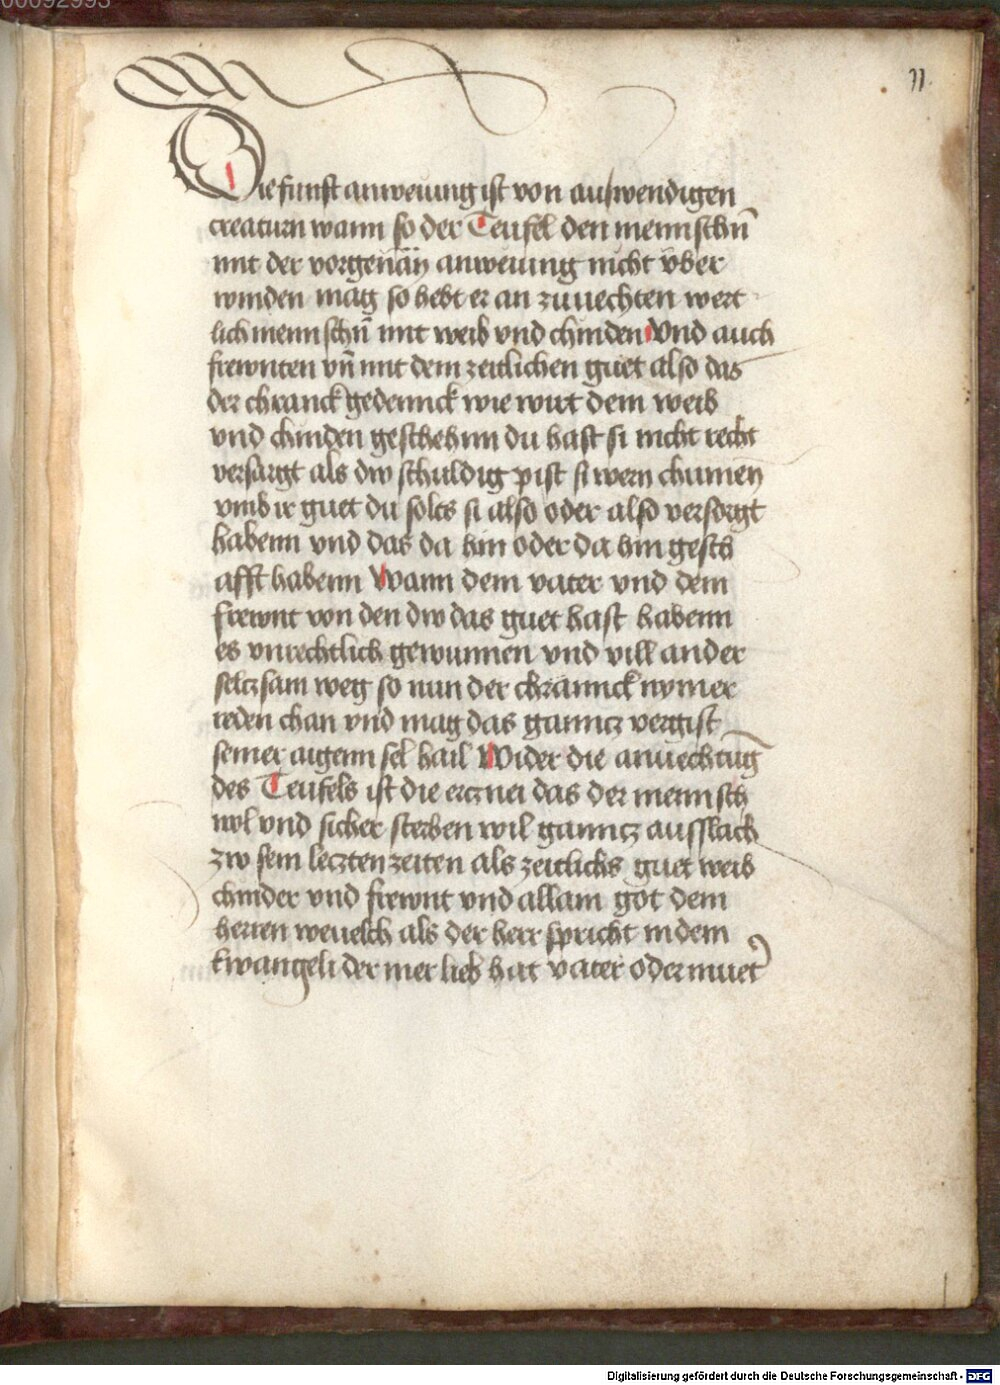 00092993
11.
Die funft anweiung ist von auswendigen
creaturn wann so der Teufel den mennschn̄
mit der vorgenan̄ anweiung nicht vber
winden mag so hebt er an zuuechten wert
lich mennschn̄ mit weib vnd chinden Vnd auch
frewnten vn̄ mit dem zeitlichen guet also das
der chranck gedennck wie wirt dem weib
vnd chinden geschehnn du hast si nicht recht
versargt als dw schuldig pist si wern chumen
vmb ir guet du soltes si also oder also versorgt
habenn vnd das da hin oder da hin gesch
afft habenn Wann dem vater vnd dem
frewnt von den dw das guet hast habenn
es vnrechtlich gewunnen vnd vill ander
seltzsam weg so nun der chrannck nymer
reden chan vnd mag das ganntz vergist
seiner aigenn sel hail Wider die anuechtūg
des Teufels ist die ercznei das der mennsch
wol vnd sicher sterben wil ganntz aufflach
zw sein leczten zeiten als zeitlichs guet weib
chinder vnd frewnt vnd allain got dem
herren weuelch als der herr spricht in dem
Ewangeli der mer lieb hat vater oder muet᾽
Digitalisierung gefördert durch die Deutsche Forschungsgemeinschaft - DFG